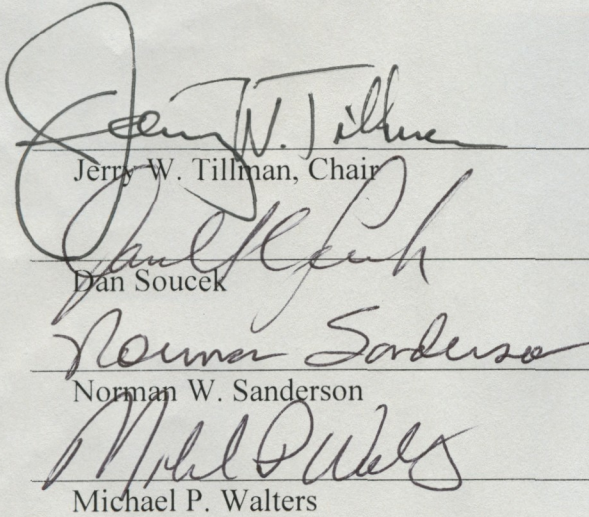 Jerry W. Tillman
Jerry W. Tillman, Chair
Dan Soucek
Norman Sanderson
Norman W. Sanderson
Michael P Walters
Michael P. Walters